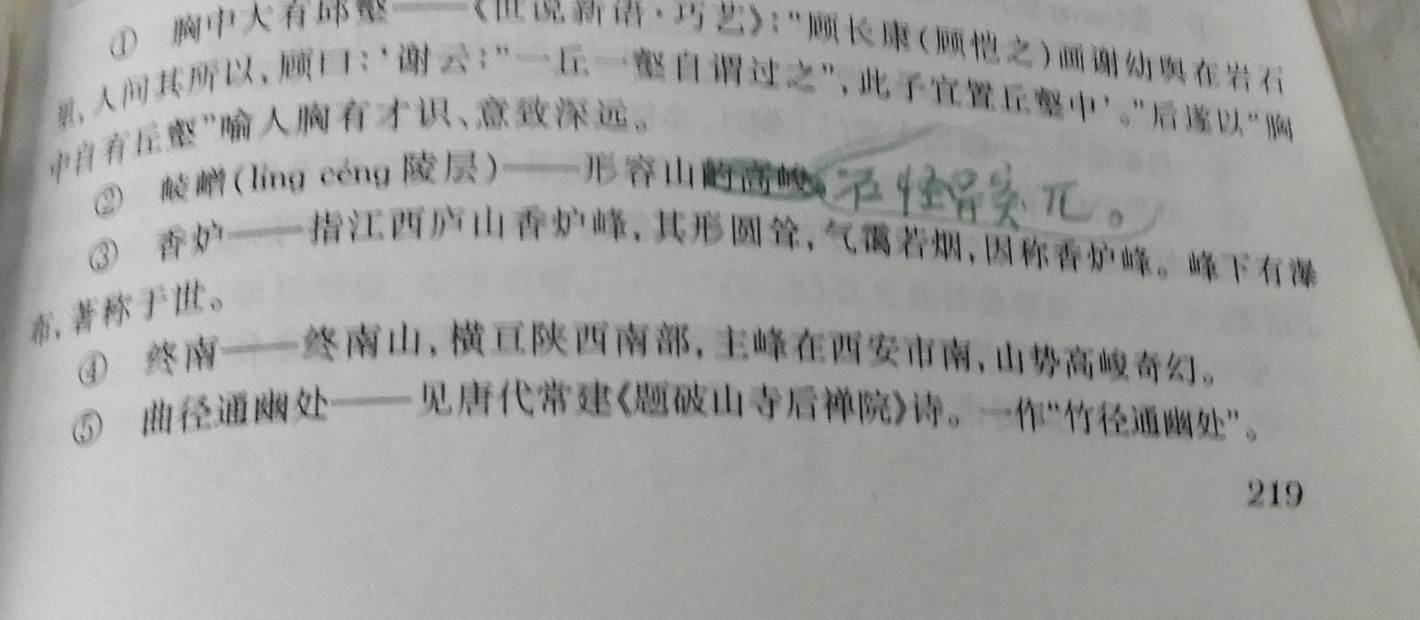 ① 胸中大有邱壑——《世说新语·巧艺》:"顾长康(顾恺之)画谢幼舆在岩石
里,人问其所以,顾曰:'谢云:"一丘一壑自谓过之",此子宜置丘壑中'。"后遂以"胸
中自有丘壑"喻人胸有才识、意致深远。
② 崚嶒(líng céng 陵层)——形容山的高峻。石怪异突兀。
③ 香炉——指江西庐山香炉峰,其形圆耸,气霭若烟,因称香炉峰。峰下有瀑
布,著称于世。
④ 终南——终南山,横亘陕西南部,主峰在西安市南,山势高峻奇幻。
⑤ 曲径通幽处——见唐代常建《题破山寺后禅院》诗。一作"竹径通幽处"。
219